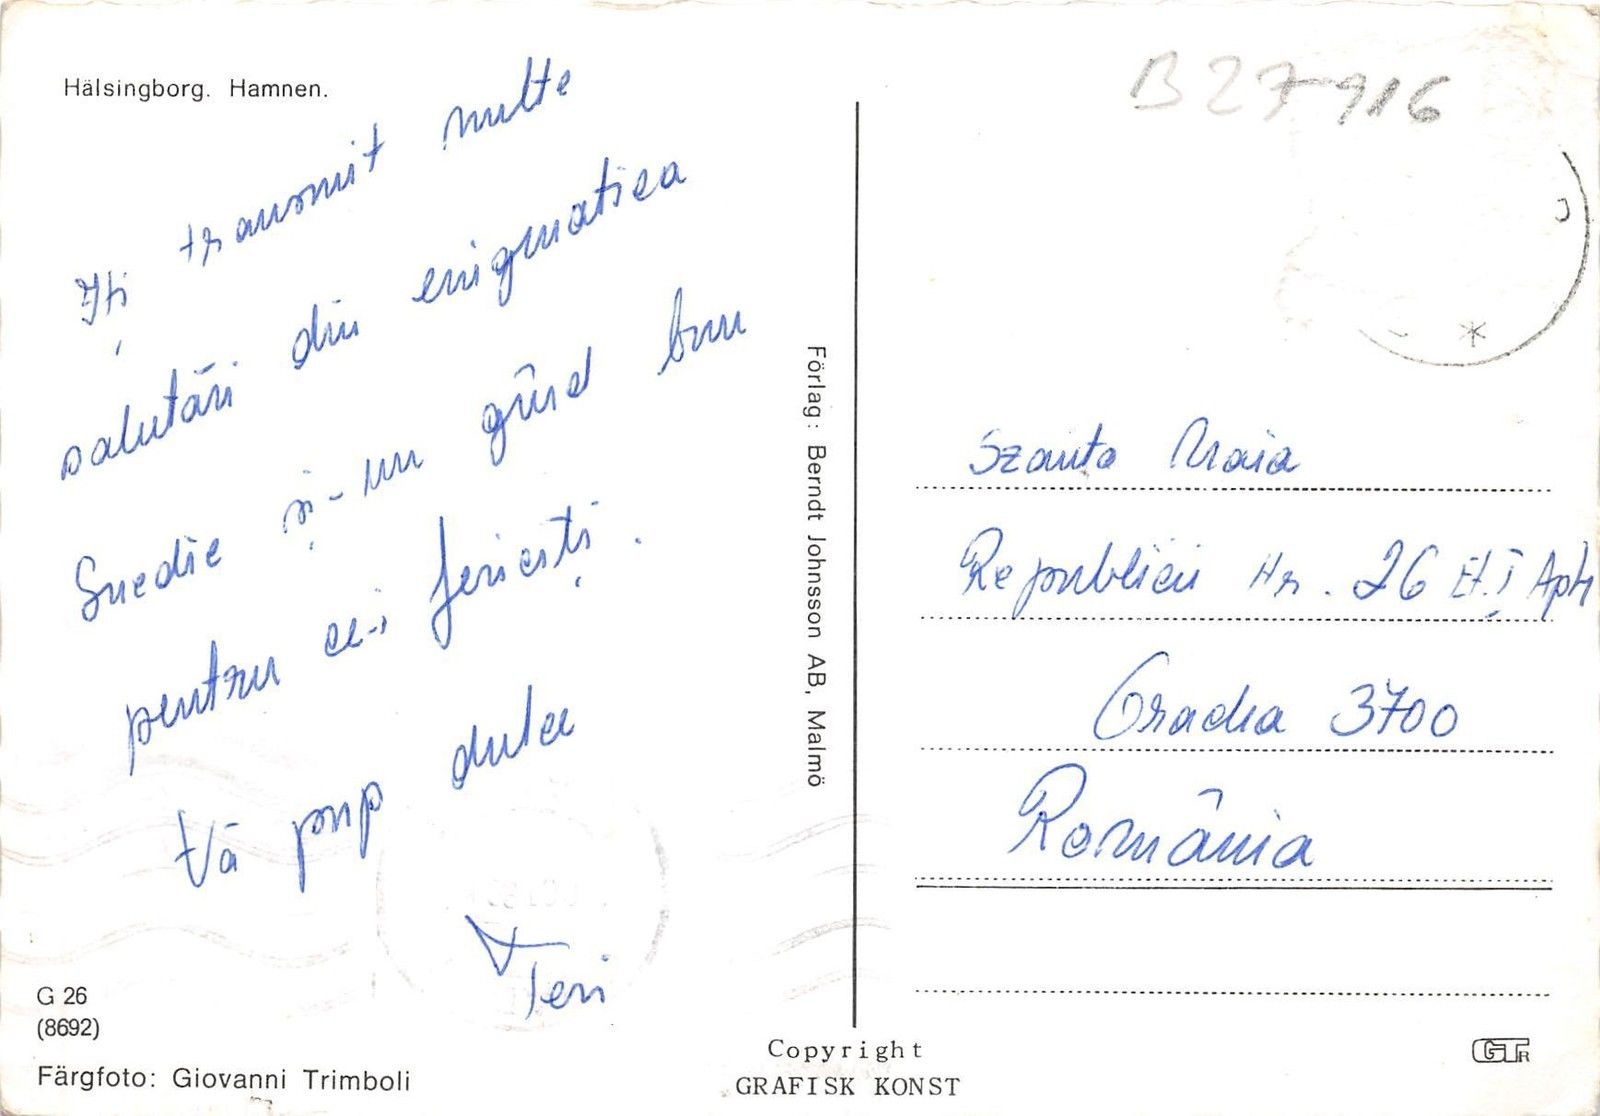 Hälsingborg. Hamnen.
Iți transmit multe
salutări din enigmatica
Suedie și-un gând bun
pentru cei fericiți.
Vă pup dulce
Teri
G 26
(8692)
Färgfoto: Giovanni Trimboli
Förlag: Berndt Johnsson AB, Malmö
Copyright
GRAFISK KONST
B27916
Szanta Maia
Republicii Nr. 26 Et. I Ap4
Oradea 3700
România
GTR